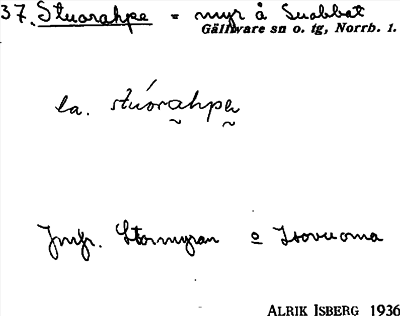 37. Stuorahpe = myr å Suobbat
Gällivare sn o. tg, Norrb. l.
la. stúorahpe̮
Jmfr. Stormyran o Isovuoma
ALRIK ISBERG 1936